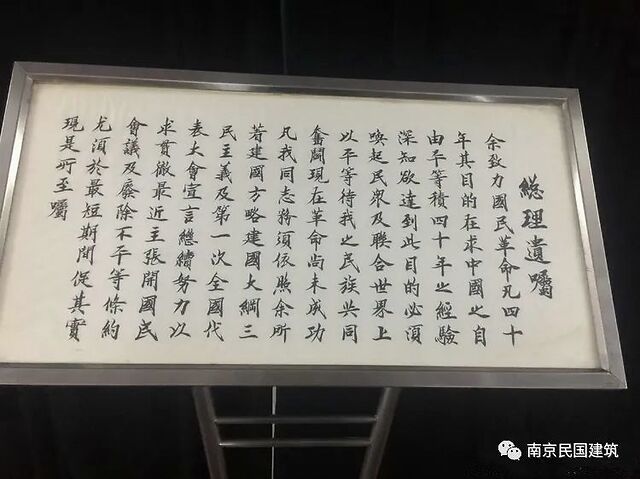 總理遺囑
余致力國民革命凡四十
年其目的在求中國之自
由平等積四十年之經驗
深知欲達到此目的必須
喚起民眾及聯合世界上
以平等待我之民族共同
奮鬪現在革命尚未成功
凡我同志務須依照余所
著建國方略建國大綱三
民主義及第一次全國代
表大會宣言繼續努力以
求貫徹最近主張開國民
會議及廢除不平等條約
尤須於最短期間促其實
現是所至囑
南京民国建筑